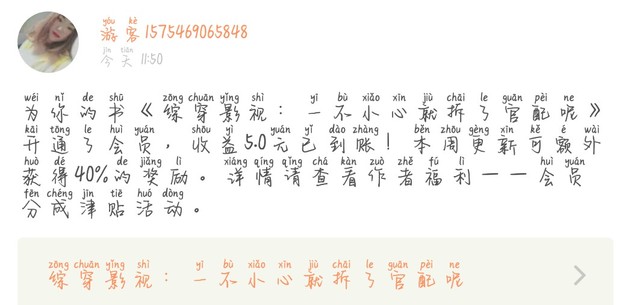 yóu kè
游客1575469065848
jīn tiān
今天 11:50
wéi nǐ de shū zōng chuān yǐng shì yī bù xiǎo xīn jiù chāi le guān pèi ne
为你的书《综穿影视：一不小心就拆了官配呢》
kāi tōng le huì yuán shōu yì yuán yǐ dào zhàng běn zhōu gèng xīn kě é wài
开通了会员，收益5.0元已到账！本周更新可额外
huò dé de jiǎng lì xiáng qíng qǐng chá kàn zuò zhě fú lì huì yuán
获得40%的奖励。详情请查看作者福利——会员
fēn chéng jīn tiē huó dòng
分成津贴活动。
zōng chuān yǐng shì yī bù xiǎo xīn jiù chāi le guān pèi ne
综穿影视：一不小心就拆了官配呢